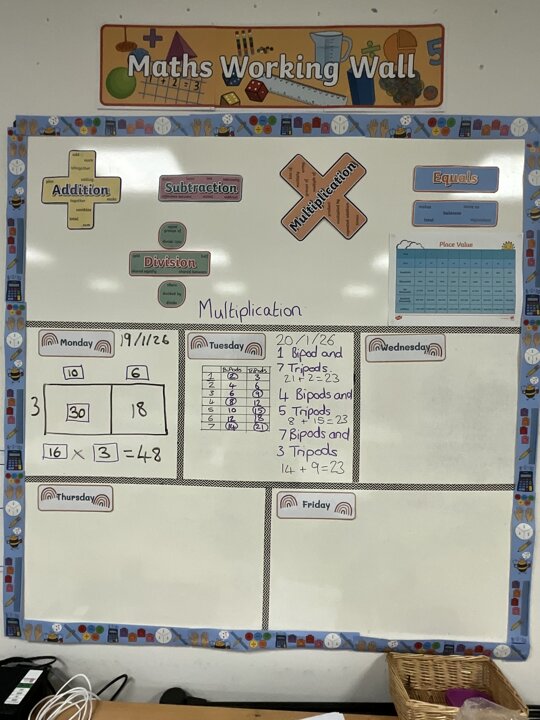 Maths Working Wall
5
Addition
Subtraction
Multiplication
Equals
balance
Division
Place Value
Multiplication
Monday
19/1/26
10 6
3 30 18
16 × 3 = 48
Tuesday
20/1/26
Bipods Tripods
1 2 3
2 4 6
3 6 9
4 8 12
5 10 15
6 12 18
7 14 21
1 Bipod and
7 Tripods
21 + 2 = 23
4 Bipods and
5 Tripods
8 + 15 = 23
7 Bipods and
3 Tripods
14 + 9 = 23
Wednesday
Thursday
Friday